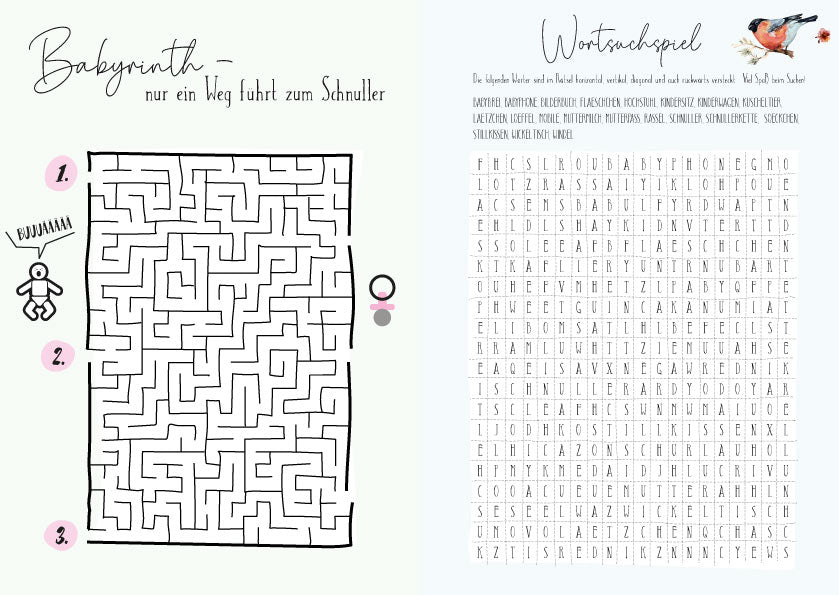 Babyrinth –
nur ein Weg führt zum Schnuller
1.
BUUUÄÄÄÄÄ
2.
3.
Wortsuchspiel
Die folgenden Wörter sind im Rätsel horizontal, vertikal, diagonal und auch rückwärts versteckt. Viel Spaß beim Suchen!
BABYBREI, BABYPHONE, BILDERBUCH, FLAESCHCHEN, HOCHSTUHL, KINDERSITZ, KINDERWAGEN, KUSCHELTIER,
LAETZCHEN, LOEFFEL, MOBILE, MUTTERMILCH, MUTTERPASS, RASSEL, SCHNULLER, SCHNULLERKETTE, SOECKCHEN,
STILLKISSEN, WICKELTISCH, WINDEL
F H C S L R O U B A B Y P H O N E G M O
L O T Z R A S S A I Y I K L O H P O U E
A C S E M S B A B U L F Y R D W A P T N
E H L D L S H A Y K I D N V T E R T T D
S S O L E E A F B F L A E S C H C H E N
K T K A F C I E R Y U N T R N U B A R T
O U H E F V M H E T Z L P A B Y Q F F E
P H W E E T G U I N C A K A N U M I A T
E L I B O M S A T L H L B E F E C L S T
R R A M L U W H T T Z I E M U U A H S E
E A Q E I S A V X N E G A W R E D N I K
I S C H N U L L E R A R D Y O D O Y A R
T S C L E A F H C S W N M W M A I U O E
L J O D H K O S T I L L K I S S E N X L
E L H I C A Z O N S C H U R L A U H O L
H P M Y K M E D A I D J H L U C R I V U
C O O A C U E U E M U T T E R A H H L N
S E S E E L W A Z W I C K E L T I S C H
U M O V O L A E T Z C H E N Q C H A S C
K Z T I S R E D N I K Z N N N C Y E W S